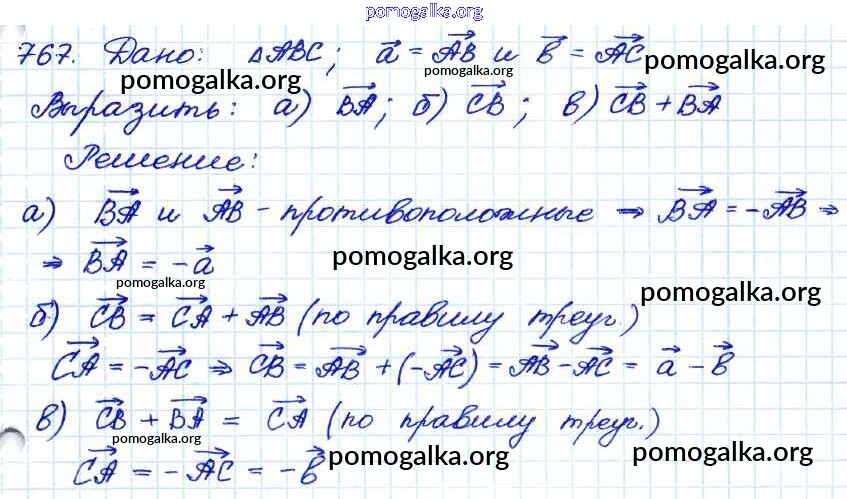 pomogalka.org
767. Дано: △ABC; a⃗ = AB⃗ и b⃗ = AC⃗ pomogalka.org
pomogalka.org pomogalka.org
Выразить: а) BA⃗; б) CB⃗; в) CB⃗ + BA⃗
Решение:
а) BA⃗ и AB⃗ - противоположные ⇒ BA⃗ = -AB⃗ ⇒
⇒ BA⃗ = -a⃗ pomogalka.org
pomogalka.org pomogalka.org
б) CB⃗ = CA⃗ + AB⃗ (по правилу треуг.)
CA⃗ = -AC⃗ ⇒ CB⃗ = AB⃗ + (-AC⃗) = AB⃗ - AC⃗ = a⃗ - b⃗
в) CB⃗ + BA⃗ = CA⃗ (по правилу треуг.)
pomogalka.org
CA⃗ = -AC⃗ = -b⃗ pomogalka.org pomogalka.org